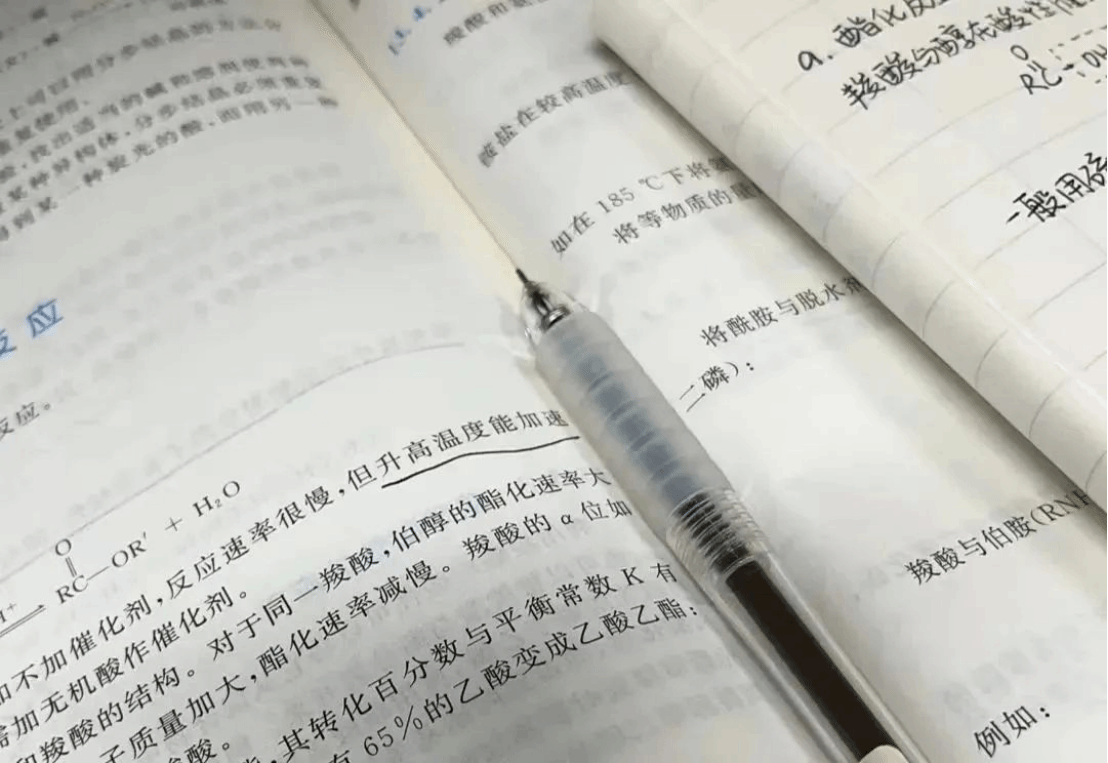 上可以用分步结晶的方法分
量使用。
某种异构体,分步结晶必须重复
到某一种旋光的酸,而用另一种
反应
反应。
O
RC—OR′ + H₂O
H⁺
如不加催化剂,反应速率很慢,但升高温度能加速
需加无机酸作催化剂。
和羧酸的结构。对于同一羧酸,伯醇的酯化速率大
子质量加大,酯化速率减慢。羧酸的 α 位如
酸。
其转化百分数与平衡常数 K 有
有 65%的乙酸变成乙酸乙酯:
铵盐在较高温度
如在 185 ℃下将
将等物质的量
将酰胺与脱水剂
二磷):
羧酸与伯胺(RNH
例如:
a. 酯化反应
羧酸与醇在酸性
O
RC-OH
一般用硫